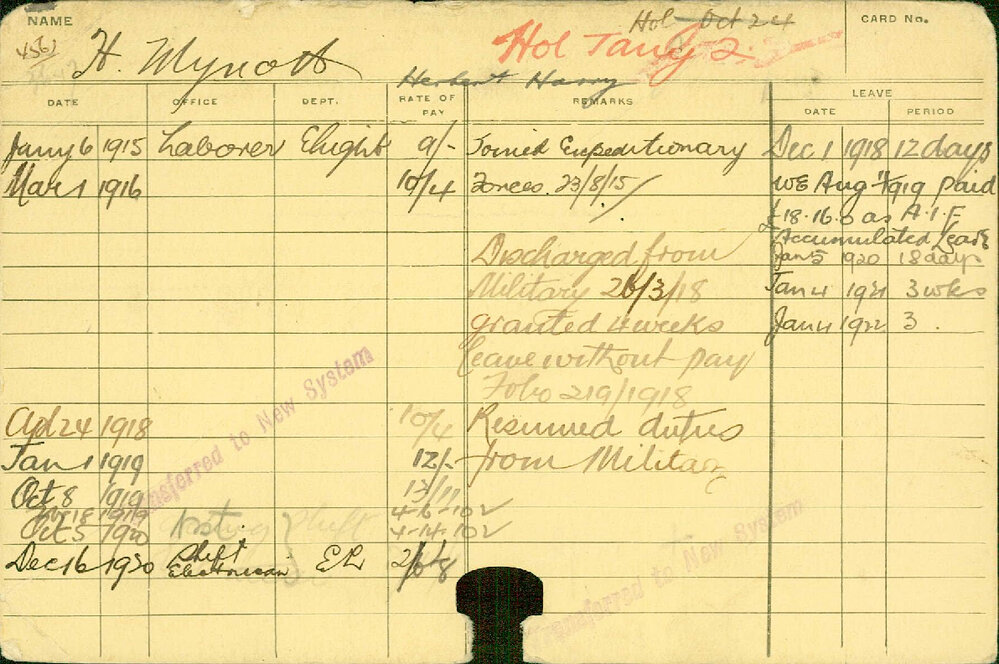 NAME
CARD No.
4562
H. Myrcott
Herbert Harry
Hol Oct 24
Hol Tandy 2.
DATE OFFICE DEPT. RATE OF PAY REMARKS LEAVE
DATE PERIOD
Jany 6 1915 Laborer Elight 9/- Joined Expeditionary Dec 1 1918 12 days
Mar 1 1916 10/4 Forces. 23/8/15 WE Aug 1919 paid
£18.16.0 as A.I.F
Accumulated Leave
Discharged from Jan 5 1920 18 days
Military 26/3/18 Jan 4 1921 3 wks
granted 4 weeks Jan 4 1922 3.
leave without pay
Folio 219/1918
Apl 24 1918 10/4 Resumed duties
Jan 1 1919 12/- from Military
Oct 8 1919 13/11
1919 4-6-10
Oct 5 1920 4-14-10
Dec 16 1920 Shift Electrician EL
Transferred to New System
Transferred to New System